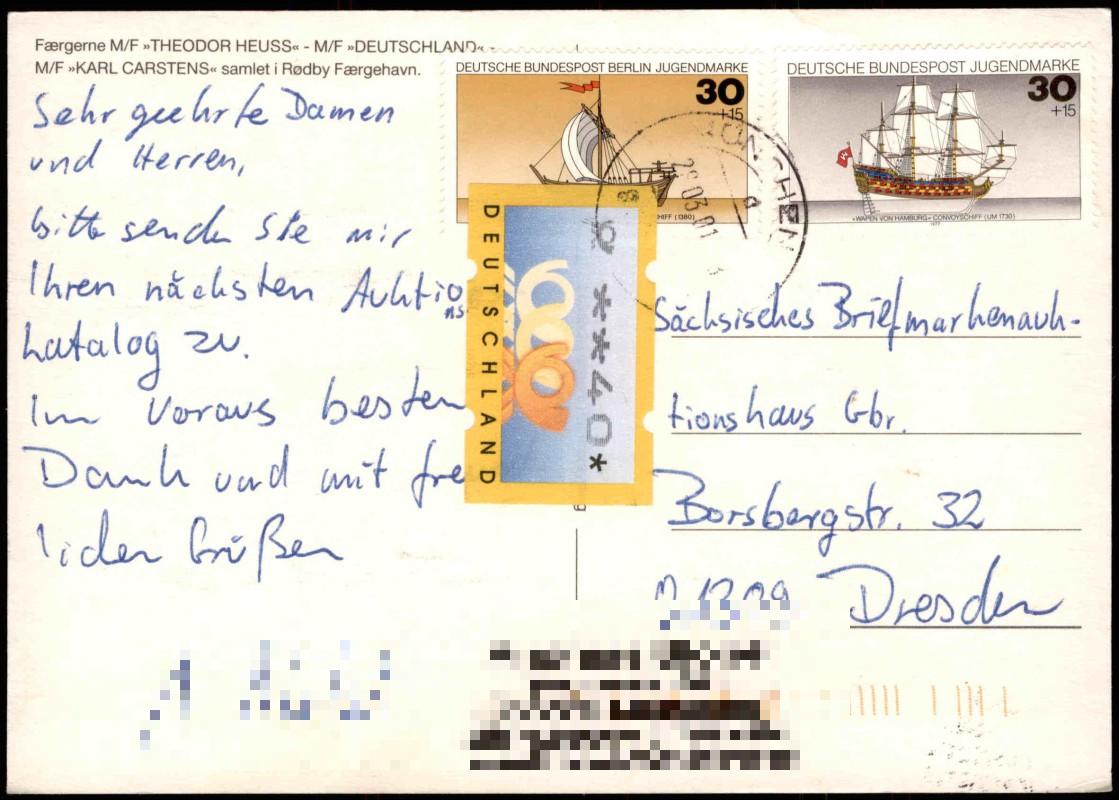 Færgerne M/F »THEODOR HEUSS« - M/F »DEUTSCHLAND« -
M/F »KARL CARSTENS« samlet i Rødby Færgehavn.
Sehr geehrte Damen
und Herren,
bitte senden Sie mir
Ihren nächsten Auktio
ns
katalog zu.
Im Voraus besten
Dank und mit fre
lichen Grüßen
DEUTSCHE BUNDESPOST BERLIN JUGENDMARKE
30
+15
SCHIFF (1380)
DEUTSCHE BUNDESPOST JUGENDMARKE
30
+15
»WAPEN VON HAMBURG« CONVOYSCHIFF (UM 1730)
1977
MÜNCHEN
26.03.01
DEUTSCHLAND
***40*
Sächsisches Briefmarkenauk-
tionshaus Gbr.
Borsbergstr. 32
Dresden